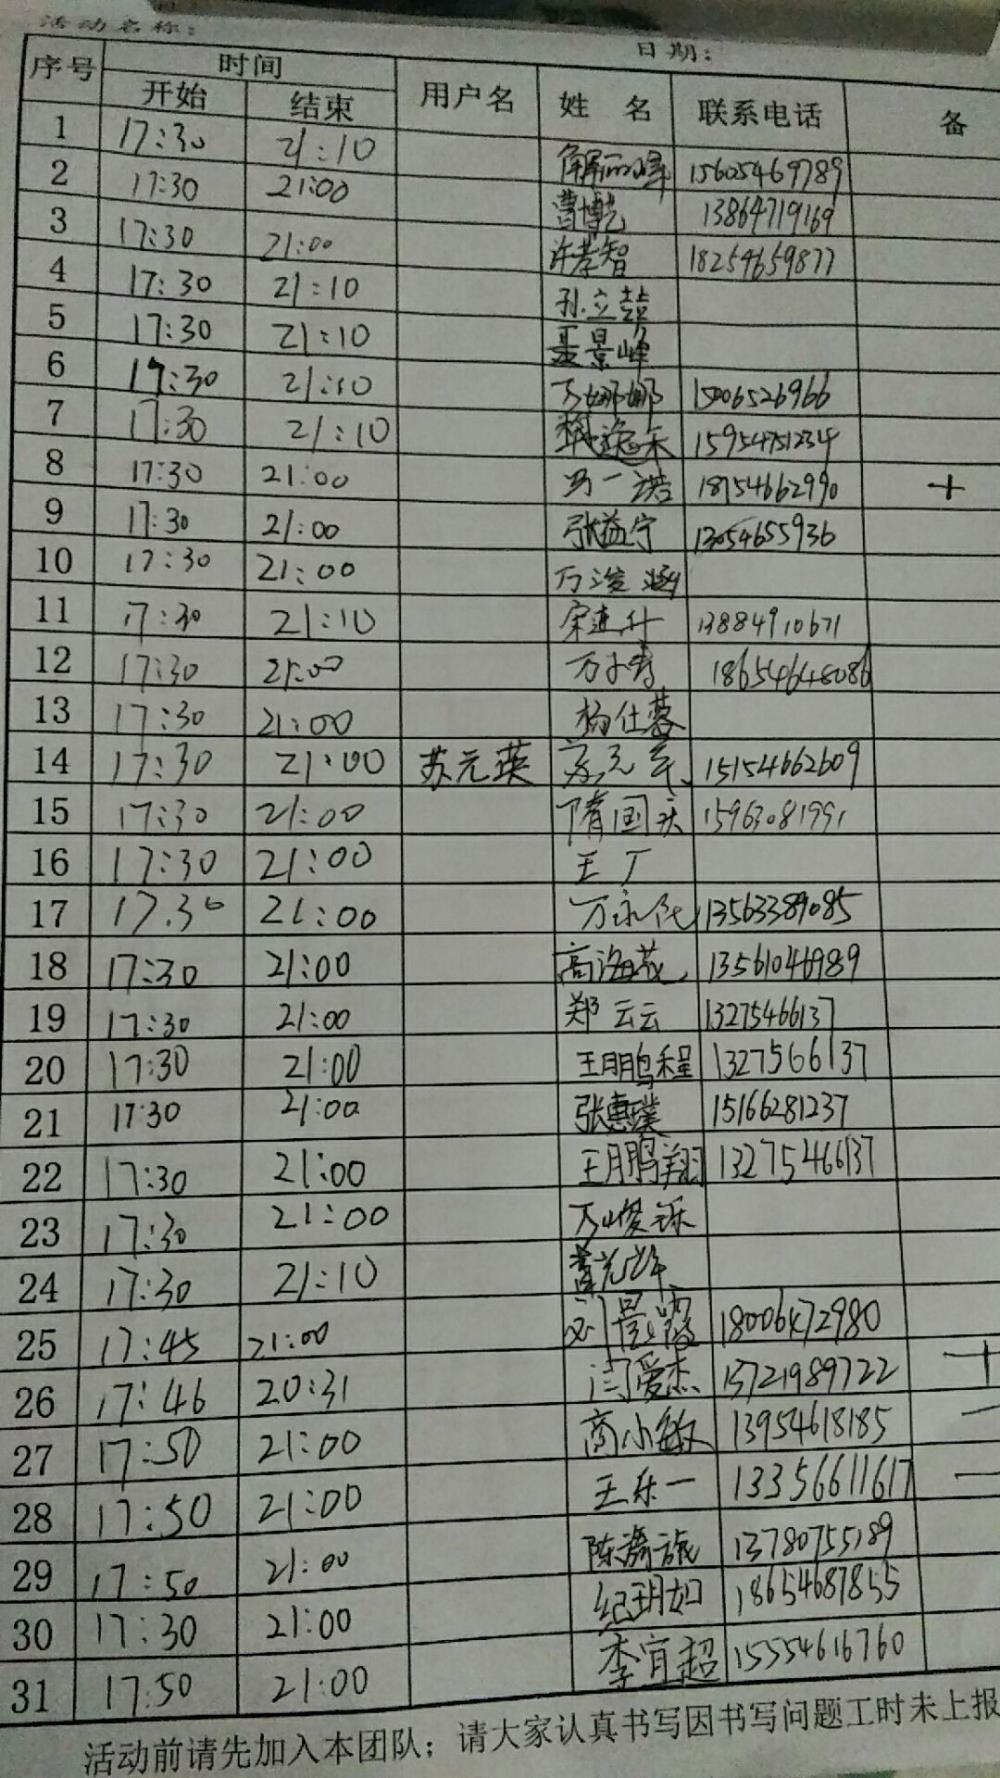 活动名称： 日期：
序号 时间 用户名 姓 名 联系电话 备
开始 结束
1 17:30 21:10 15605469789
2 17:30 21:00 曹博 13864719169
3 17:30 21:00 许孝智 18254659877
4 17:30 21:10 孙立喆
5 17:30 21:10 聂景峰
6 17:30 21:10 万娜娜 15006526966
7 17:30 21:10 15954751234
8 17:30 21:00 马一诺 18954662990 +
9 17:30 21:00 张益宁 13054655936
10 17:30 21:00 万浚涵
11 17:30 21:10 宋建升 13884910671
12 17:30 21:00 18654648086
13 17:30 21:00 杨仕蓉
14 17:30 21:00 苏元英 苏元英 15154662609
15 17:30 21:00 隋国庆 15963081991
16 17:30 21:00 王厂
17 17.30 21:00 13563389085
18 17:30 21:00 高海茂 13561046989
19 17:30 21:00 郑云云 13275466137
20 17:30 21:00 王鹏程 1327566137
21 17:30 21:00 张惠璞 15166281237
22 17:30 21:00 王鹏翔 13275466137
23 17:30 21:00 万峻铄
24 17:30 21:10
25 17:45 21:00 18006472980
26 17:46 20:31 闫爱杰 15721989722 +
27 17:50 21:00 高小敏 13954618185 —
28 17:50 21:00 王乐一 13356611617 —
29 17:50 21:00 陈漪旎 13780755189
30 17:30 21:00 纪玥如 18654687855
31 17:50 21:00 李宜超 15554616760
活动前请先加入本团队；请大家认真书写因书写问题工时未上报